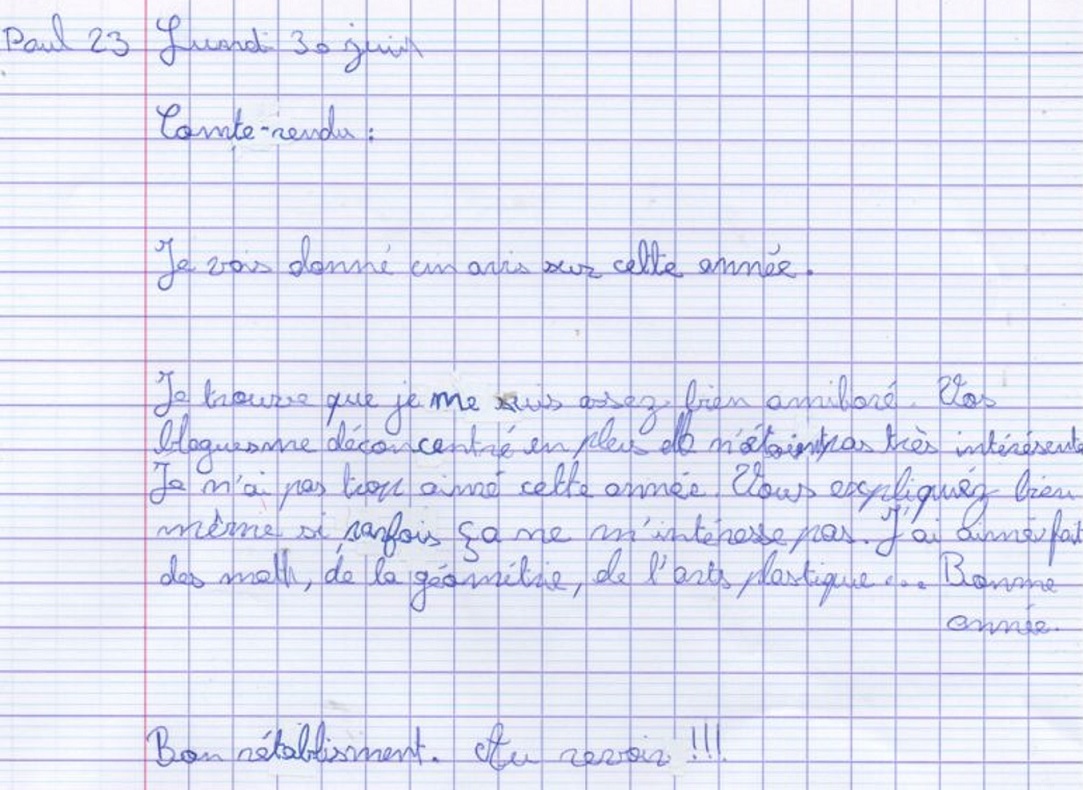 Paul 23 Lundi 30 juin
Comte-rendu :
Je vais donné un avis sur cette année.
Je trouve que je me suis assez bien amiloré. Vos
blagues me déconcentré en plus  n'étaint pas très intérésente
Je n'ai pas trop aimé cette année. Vous expliquiéz bien
même si parfois ça ne m'intéresse pas. J'ai aimé fait
des math, de la géométrie, de l'arts plastique ... Bonne
année.
Bon rétablisment. Au revoir !!!